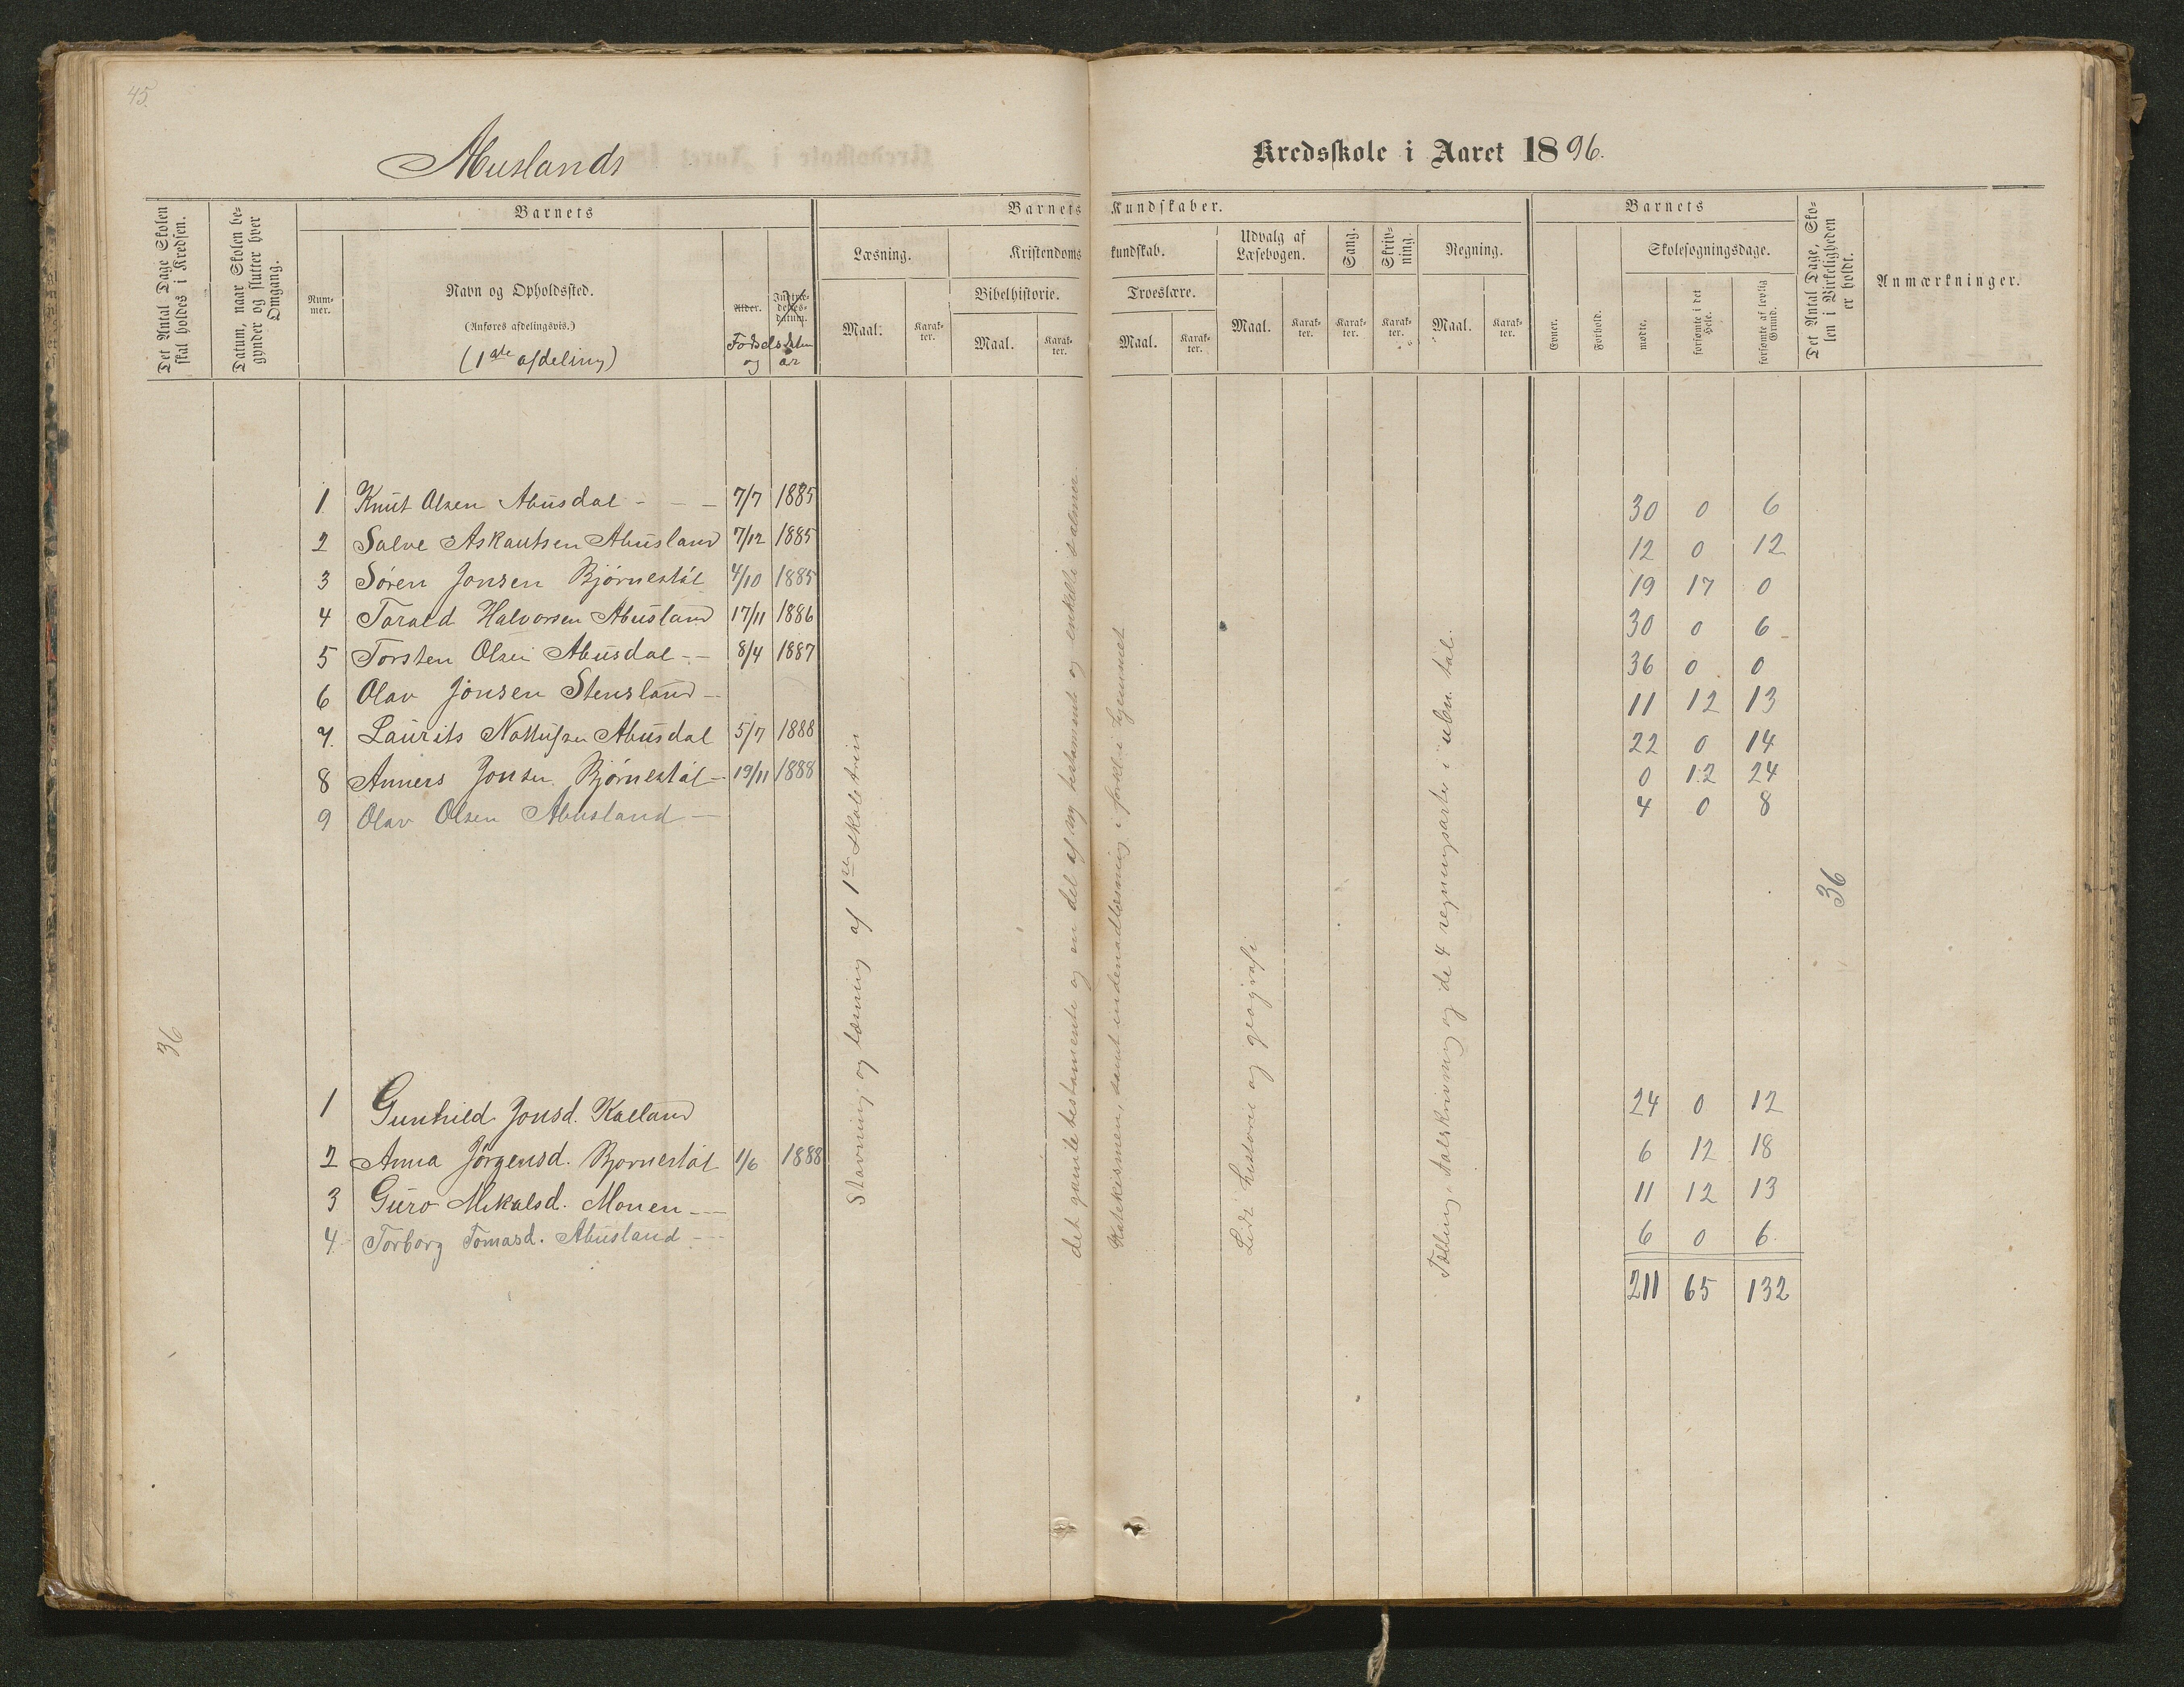 45.
Abuslands Kredsskole i Aaret 1896.
Det Antal Dage Skolen skal holdes i Kredsen.
Datum, naar Skolen begynder og slutter hver Omgang.
Barnets
Nummer.
Navn og Opholdssted.
(Anføres afdelingsvis.)
(1ste afdeling)
Alder.
Indtrædelsesdatum.
Fødselsdatum og år
Barnets Kundskaber.
Læsning.
Maal.
Karakter.
Kristendomskundskab.
Bibelhistorie.
Maal.
Karakter.
Troeslære.
Maal.
Karakter.
Udvalg af Læsebogen.
Maal.
Karakter.
Sang.
Karakter.
Skrivning.
Karakter.
Regning.
Maal.
Karakter.
Barnets
Evner.
Forhold.
Skolesøgningsdage.
mødte.
forsømte i det Hele.
forsømte af lovlig Grund.
Det Antal Dage, Skolen i Virkeligheden er holdt.
Anmærkninger.
1 Knut Olsen Abusdal - - - 7/7 1885 30 0 6
2 Salve Askautsen Abusland 7/12 1885 12 0 12
3 Søren Jonsen Bjørnestøl 4/10 1885 19 17 0
4 Tarald Halvorsen Abusland 17/11 1886 30 0 6
5 Torsten Olsen Abusdal - - 8/4 1887 36 0 0
6 Olav Jonsen Stensland - 11 12 13
7. Laurits Abusdal 5/7 1888 22 0 14
8 Anners Jonsen Bjørnestøl - 19/11 1888 0 12 24
9 Olav Olsen Abusland - 4 0 8
36
36
1 Gunhild Jonsd. Kaland 24 0 12
2 Anna Jørgensd. Bjørnestøl 1/6 1888 6 12 18
3 Guro Mikalsd. Monen - - 11 12 13
4. Torborg Tomasd. Abusland - - 6 0 6
211 65 132
Stavning og læsning af 1ste skoletrin
det gamle testamente og en del af ny testamente og enkelte salmer
Katekismen, samt indenadlæsning i forkl. i hjemmet
Lidt historie og geografi
Tælling, talskrivning og de 4 regningsarter i ubn. tal.